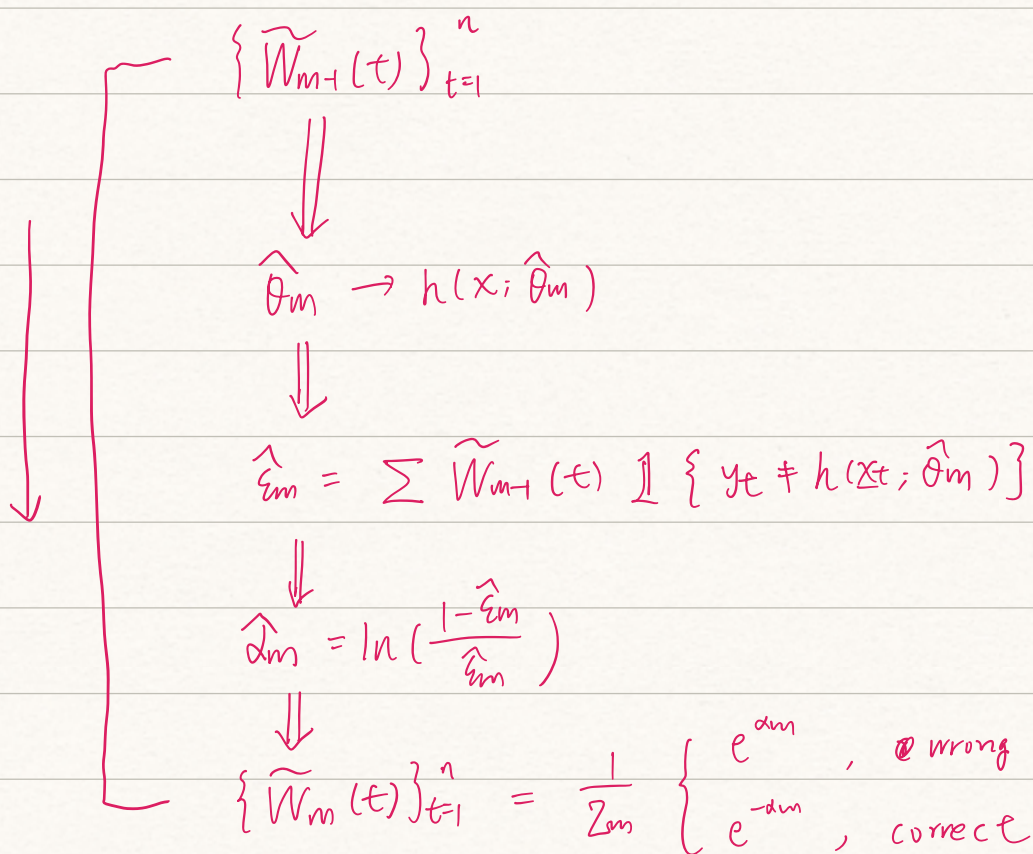 { W̃m-1 (t) }ⁿ t=1
θ̂m → h(x; θ̂m)
ε̂m = ∑ W̃m-1 (t) 𝟙 { yt ≠ h(xt; θ̂m) }
α̂m = ln( (1-ε̂m) / ε̂m )
{ W̃m (t) }ⁿ t=1 = 1/Zm { e^αm , wrong
e^-αm , correct